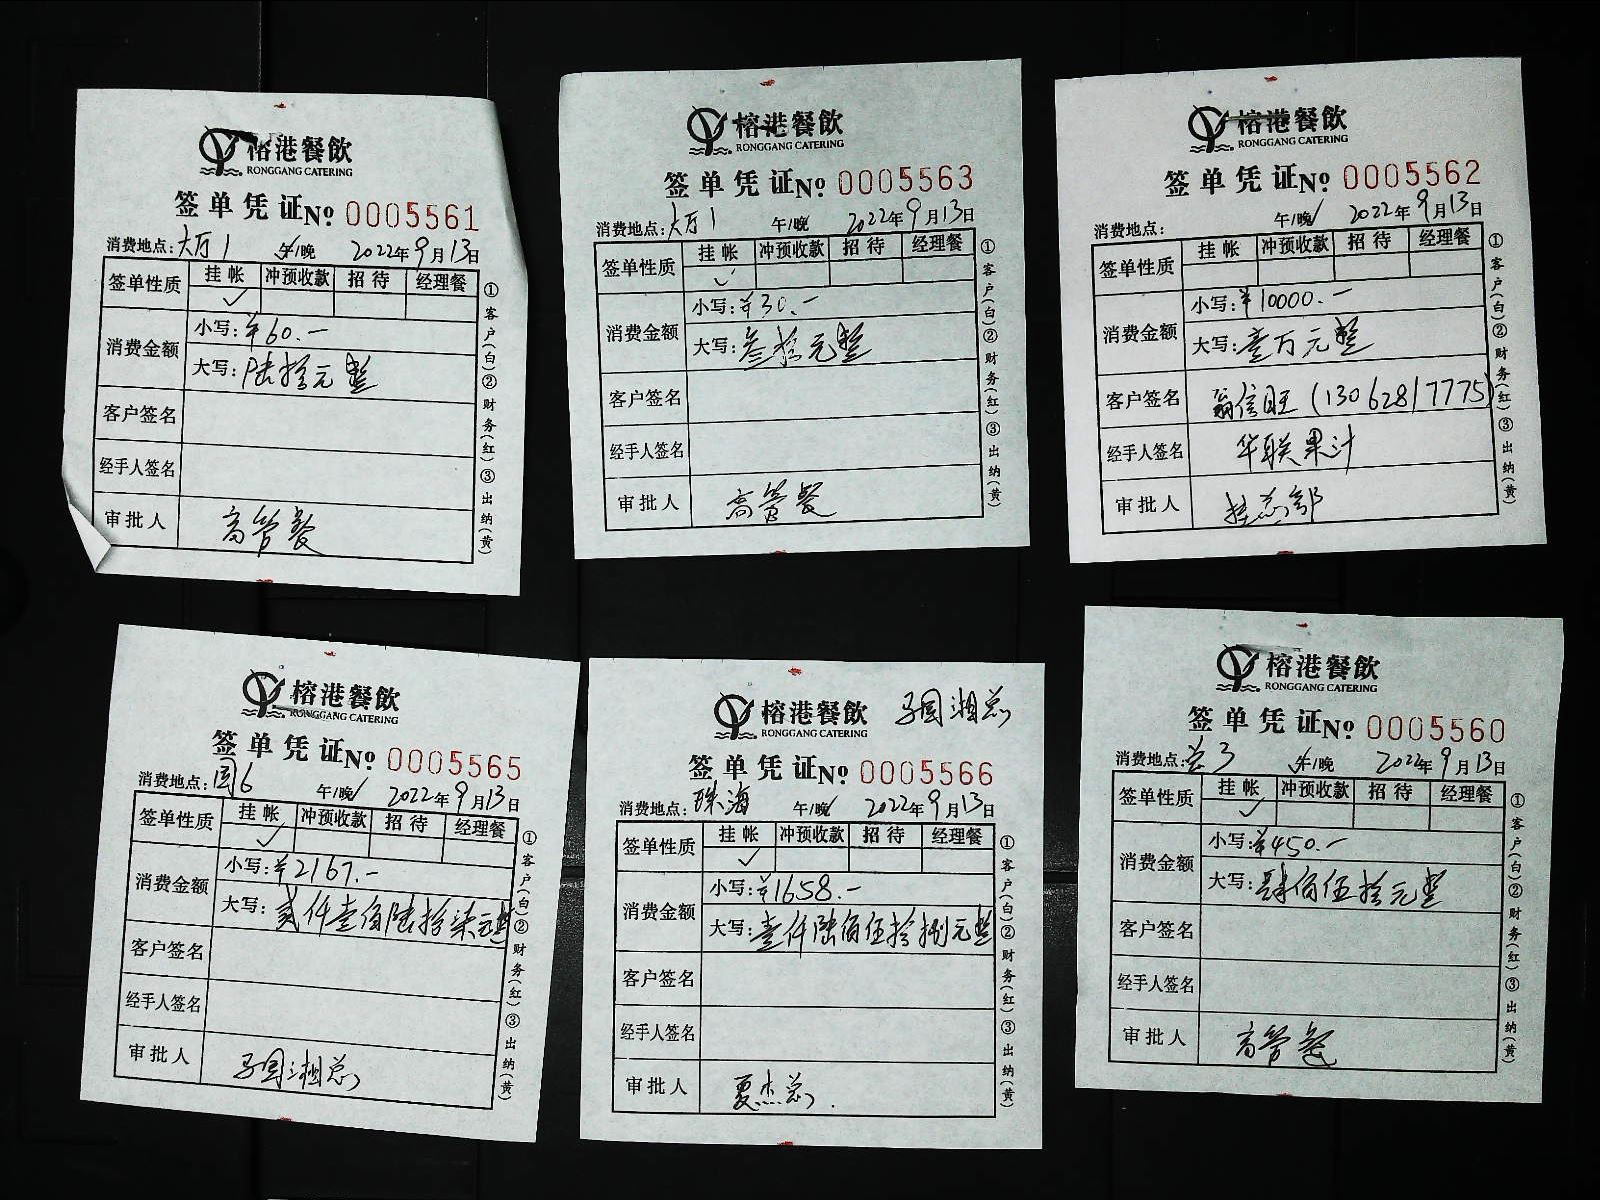 榕港餐飲
RONGGANG CATERING
签单凭证 № 0005561
消费地点：大厅1 午/晚 2022年9月13日
签单性质 挂帐 冲预收款 招待 经理餐
✓
消费金额 小写：¥60.-
大写：陆拾元整
客户签名
经手人签名
审批人 高管餐
①客户(白)②财务(红)③出纳(黄)
榕港餐飲
RONGGANG CATERING
签单凭证 № 0005563
消费地点：大厅1 午/晚 2022年9月13日
签单性质 挂帐 冲预收款 招待 经理餐
✓
消费金额 小写：¥30.-
大写：叁拾元整
客户签名
经手人签名
审批人 高管餐
①客户(白)②财务(红)③出纳(黄)
榕港餐飲
RONGGANG CATERING
签单凭证 № 0005562
消费地点： 午/晚 2022年9月13日
签单性质 挂帐 冲预收款 招待 经理餐
消费金额 小写：¥10000.-
大写：壹万元整
客户签名 翁信旺(13062817775)
经手人签名 华联果汁
审批人
①客户(白)②财务(红)③出纳(黄)
榕港餐飲
RONGGANG CATERING
签单凭证 № 0005565
消费地点：国6 午/晚 2022年9月13日
签单性质 挂帐 冲预收款 招待 经理餐
✓
消费金额 小写：¥2167.-
大写：贰仟壹佰陆拾柒元整
客户签名
经手人签名
审批人 子国湘总
①客户(白)②财务(红)③出纳(黄)
榕港餐飲 子国湘总
RONGGANG CATERING
签单凭证 № 0005566
消费地点：珠海 午/晚 2022年9月13日
签单性质 挂帐 冲预收款 招待 经理餐
✓
消费金额 小写：¥1658.-
大写：壹仟陆佰伍拾捌元整
客户签名
经手人签名
审批人 夏杰总
①客户(白)②财务(红)③出纳(黄)
榕港餐飲
RONGGANG CATERING
签单凭证 № 0005560
消费地点：兰3 午/晚 2022年9月13日
签单性质 挂帐 冲预收款 招待 经理餐
✓
消费金额 小写：¥450.-
大写：肆佰伍拾元整
客户签名
经手人签名
审批人 高管餐
①客户(白)②财务(红)③出纳(黄)